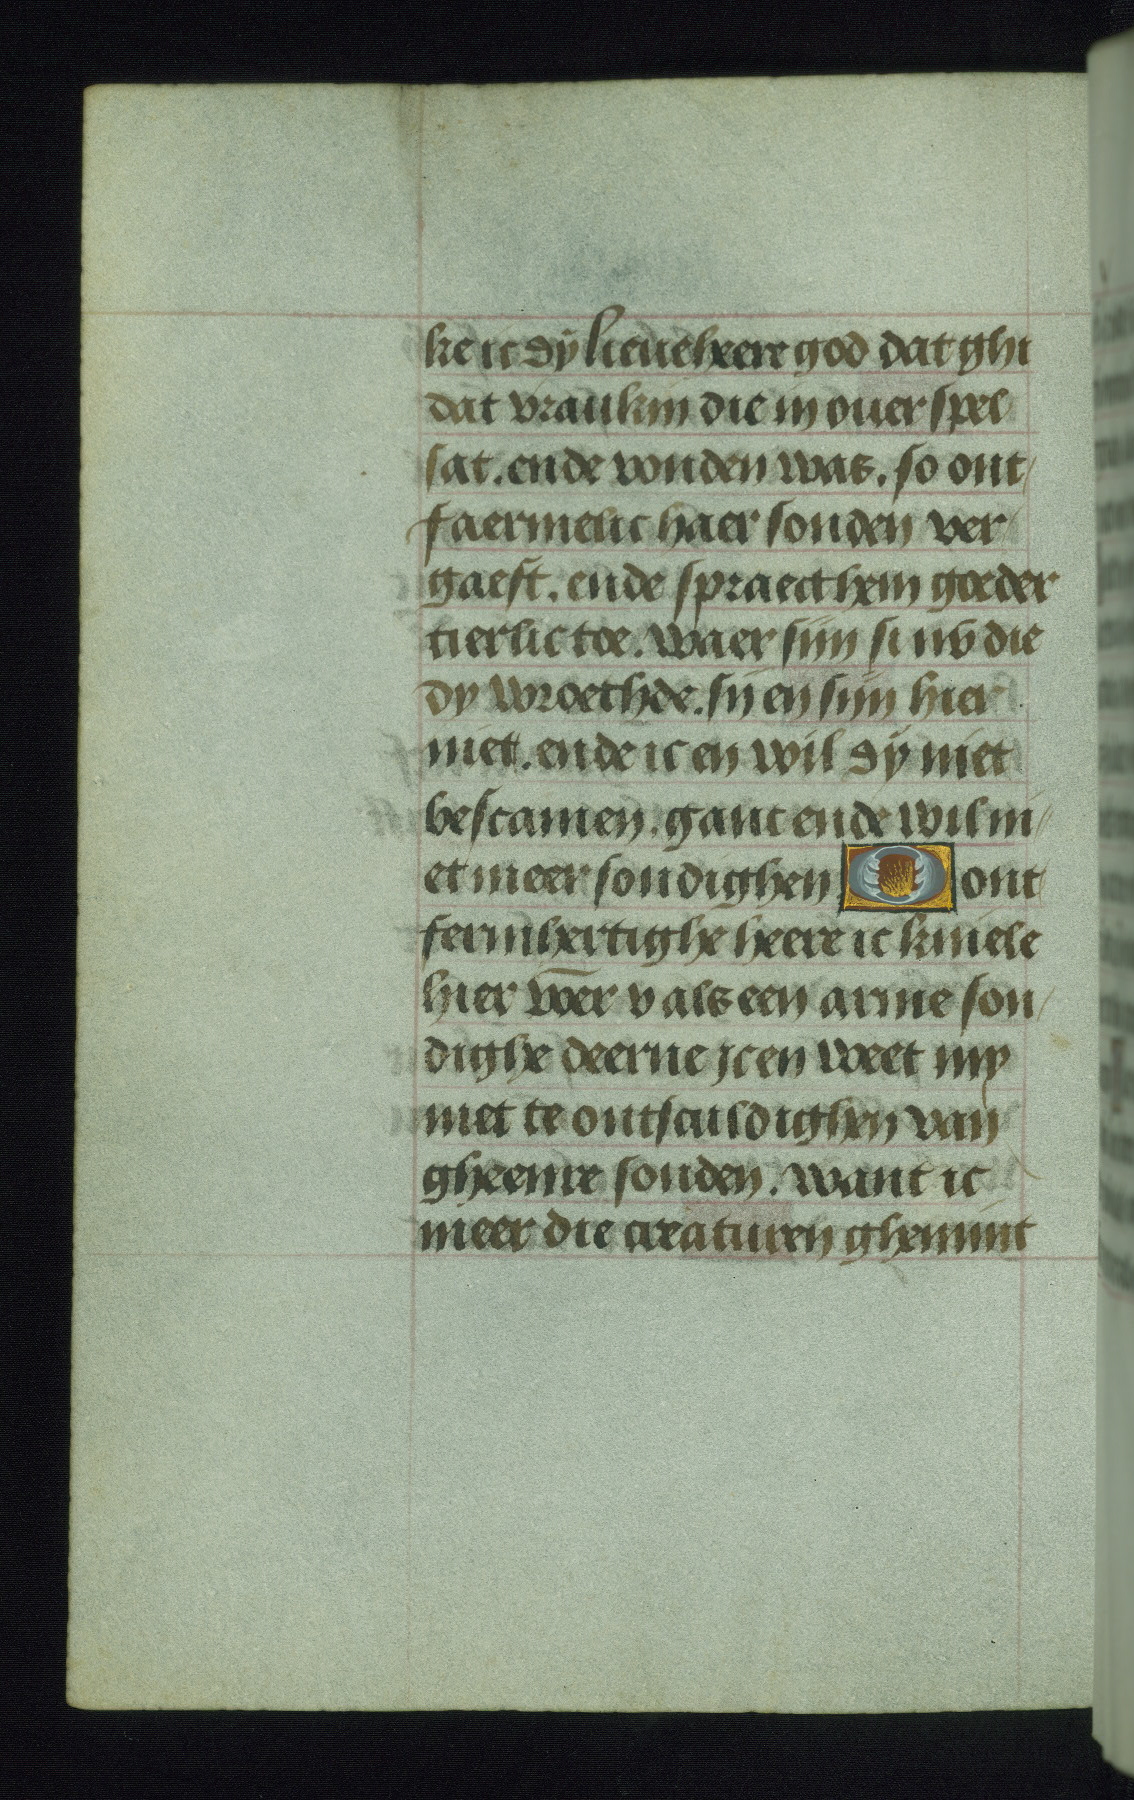 ke ic dy lieue heere god dat ghi
dat vraukin die in ouer spel
sat. ende vonden was. so ont/
faermelic haer sonden ver
gaeft. ende spraect hem goeder
tierlic toe. waer sijn si nv die
dy wroethde. sij en sijn hier
niet. ende ic en wil dy niet
bescamen. gant ende wil ni/
et meer sondighen. O ont
fermhertighe heere ic kniele
hier voer v als een arme son/
dighe deerne jc en weet my
niet te ontsculdighen van
gheenre sonden. want ic
meer die creaturen ghemint